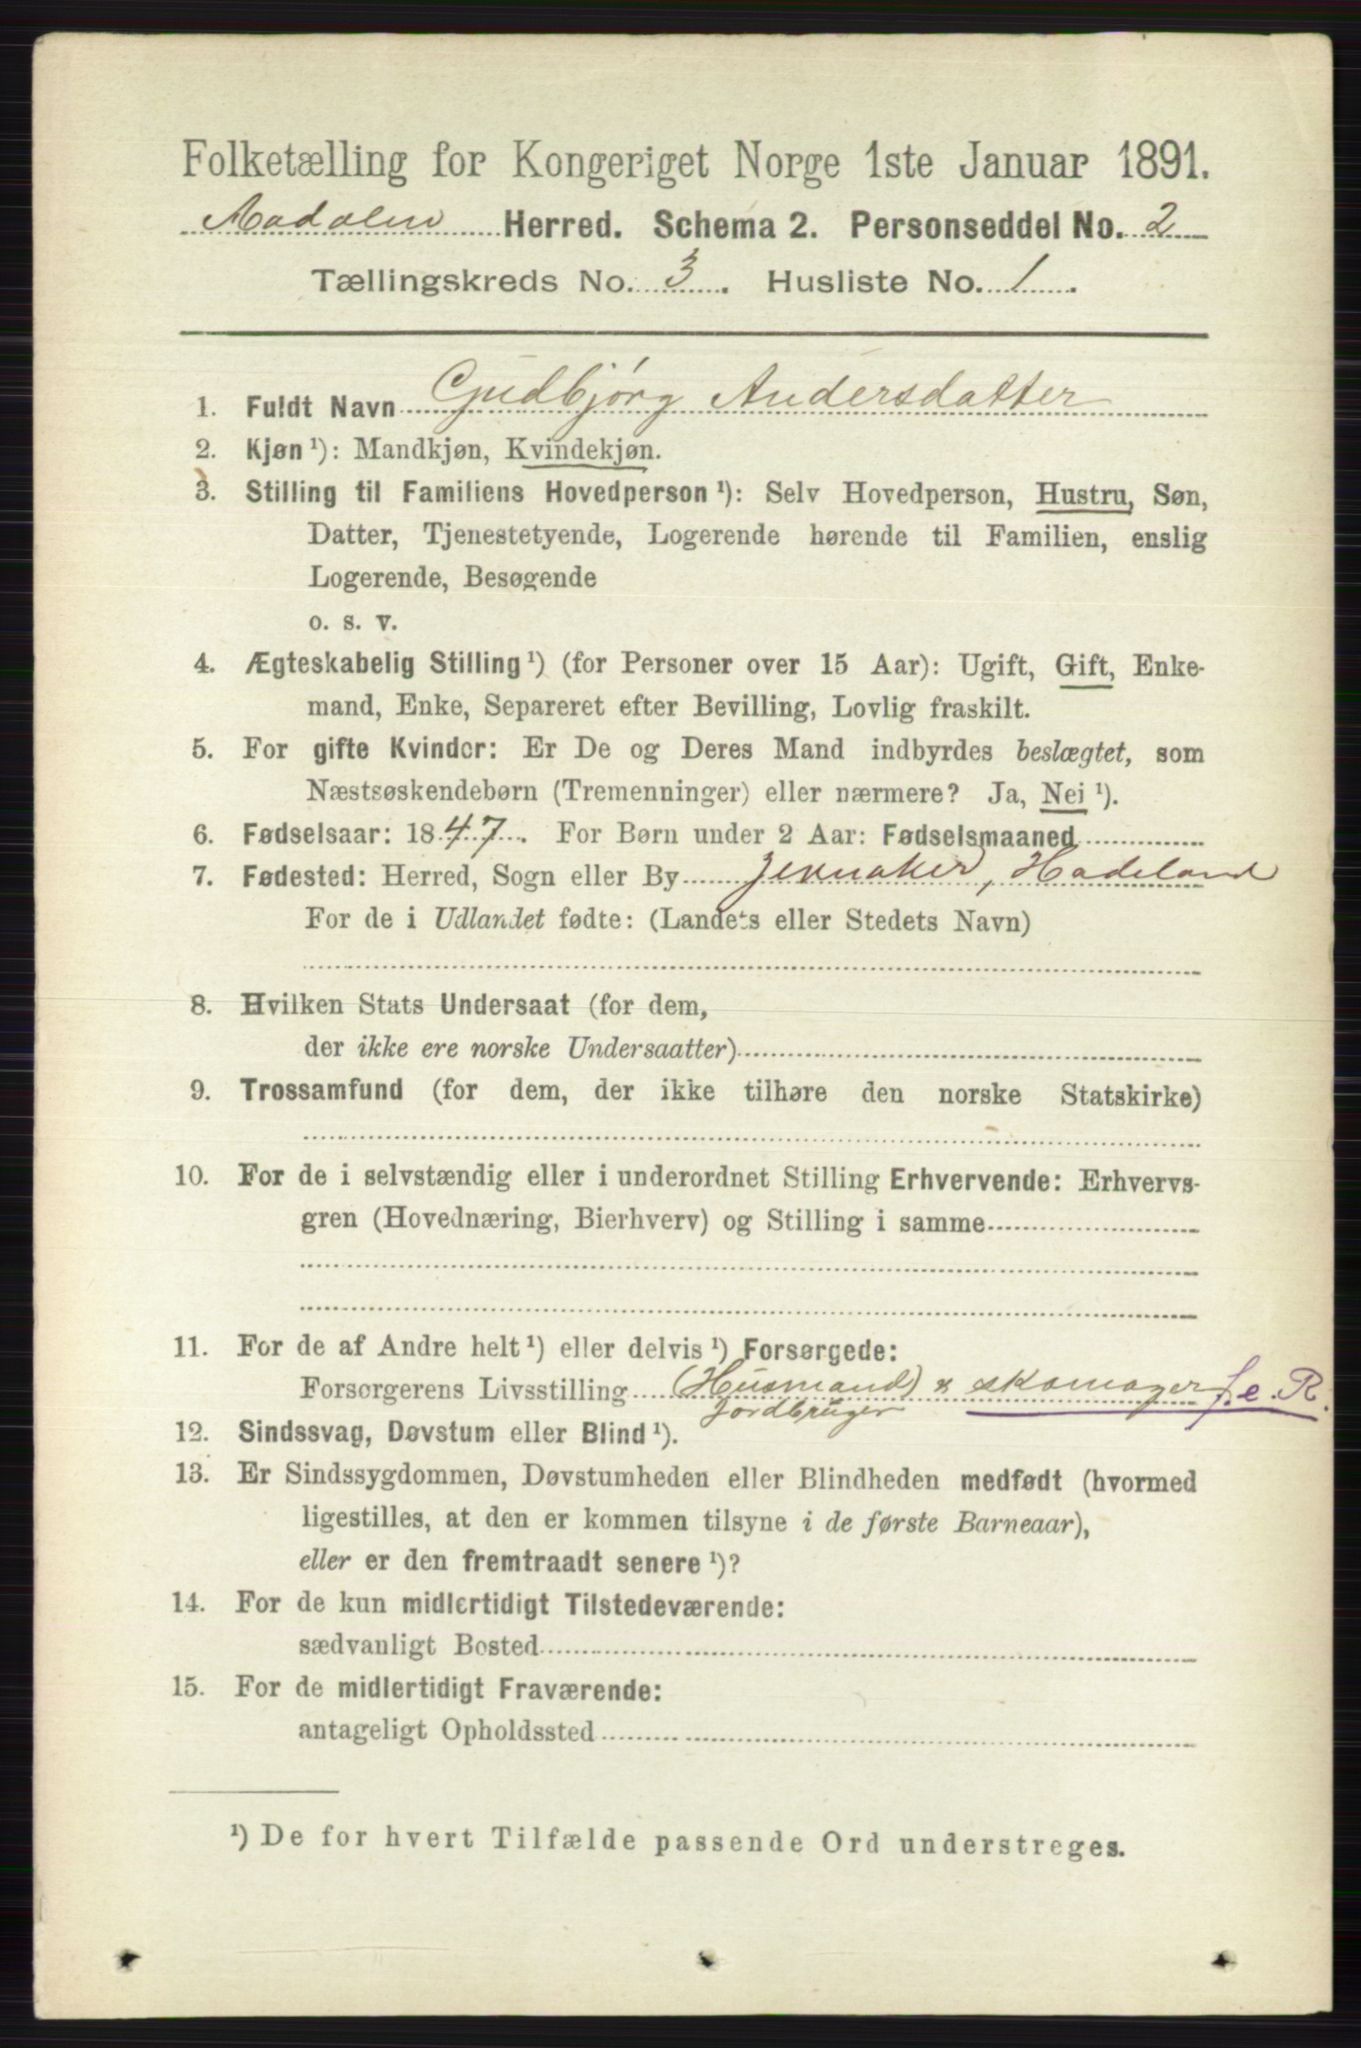 Folketælling for Kongeriget Norge 1ste Januar 1891.
Aadalen Herred. Schema 2. Personseddel No. 2
Tællingskreds No. 3. Husliste No. 1.
1. Fuldt Navn Gudbjørg Andersdatter
2. Kjøn ¹): Mandkjøn, Kvindekjøn.
3. Stilling til Familiens Hovedperson ¹): Selv Hovedperson, Hustru, Søn,
Datter, Tjenestetyende, Logerende hørende til Familien, enslig
Logerende, Besøgende
o. s. v.
4. Ægteskabelig Stilling ¹) (for Personer over 15 Aar): Ugift, Gift, Enke-
mand, Enke, Separeret efter Bevilling, Lovlig fraskilt.
5. For gifte Kvinder: Er De og Deres Mand indbyrdes beslægtet, som
Næstsøskendebørn (Tremenninger) eller nærmere? Ja, Nei ¹).
6. Fødselsaar: 1847. For Børn under 2 Aar: Fødselsmaaned
7. Fødested: Herred, Sogn eller By Jevnaker, Hadeland
For de i Udlandet fødte: (Landets eller Stedets Navn)
8. Hvilken Stats Undersaat (for dem,
der ikke ere norske Undersaatter)
9. Trossamfund (for dem, der ikke tilhøre den norske Statskirke)
10. For de i selvstændig eller i underordnet Stilling Erhvervende: Erhvervs-
gren (Hovednæring, Bierhverv) og Stilling i samme
11. For de af Andre helt ¹) eller delvis ¹) Forsørgede:
Forsørgerens Livsstilling (Husmand) & skomager f. e. R.
Jordbruger
12. Sindssvag, Døvstum eller Blind ¹).
13. Er Sindssygdommen, Døvstumheden eller Blindheden medfødt (hvormed
ligestilles, at den er kommen tilsyne i de første Barneaar),
eller er den fremtraadt senere ¹)?
14. For de kun midlertidigt Tilstedeværende:
sædvanligt Bosted
15. For de midlertidigt Fraværende:
antageligt Opholdssted
¹) De for hvert Tilfælde passende Ord understreges.